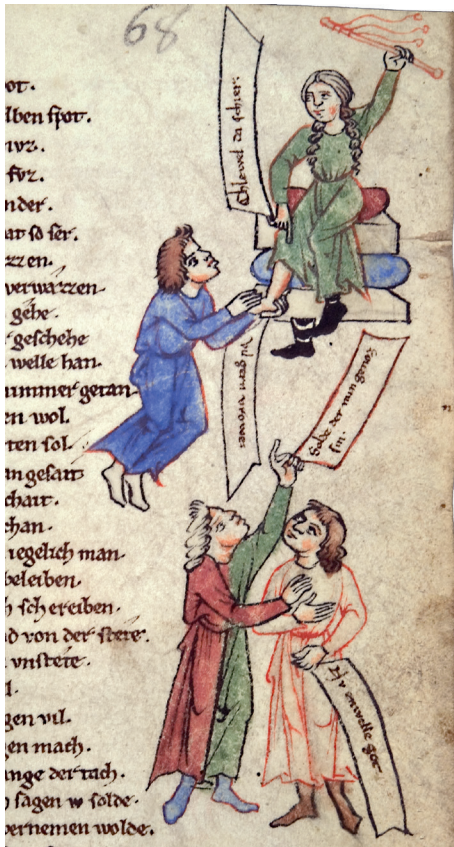 68
ot.
lben spot.
fvr.
nder.
at so ser.
zzen.
verwazzen
gehe.
geschehe
welle han.
nimmer getan.
en wol.
ten sol.
angesait
chait.
chan.
iegelich man.
beleiben.
h schreiben.
d von der stete.
vnstete.
l.
gen vil.
en mach.
ange der tach.
sagen w solde.
vernemen wolde.
da schier.
vil gern vrowe
Solde der min genoz
sin.
Nv enwelle got